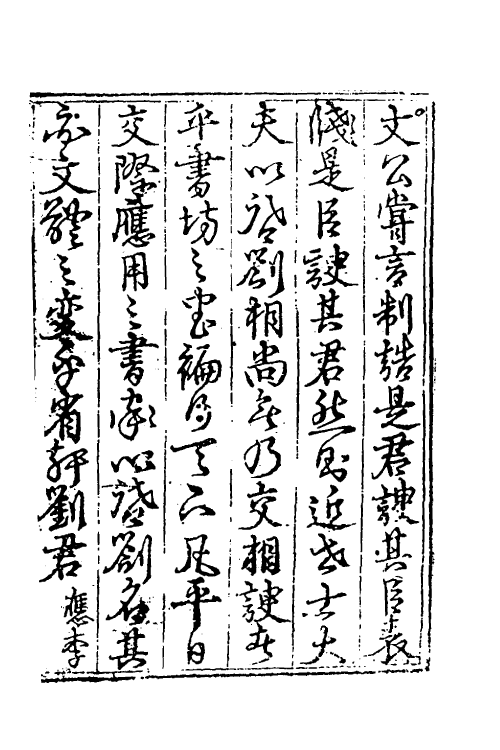 文公嘗言制誥是君諛其臣表
牋是臣諛其君然則近世士大
夫以啓劄相尚無乃交相諛者
乎書坊之書徧行天下凡平日
交際應用之書例以啓劄名其
亦文體之變乎省軒劉君應李